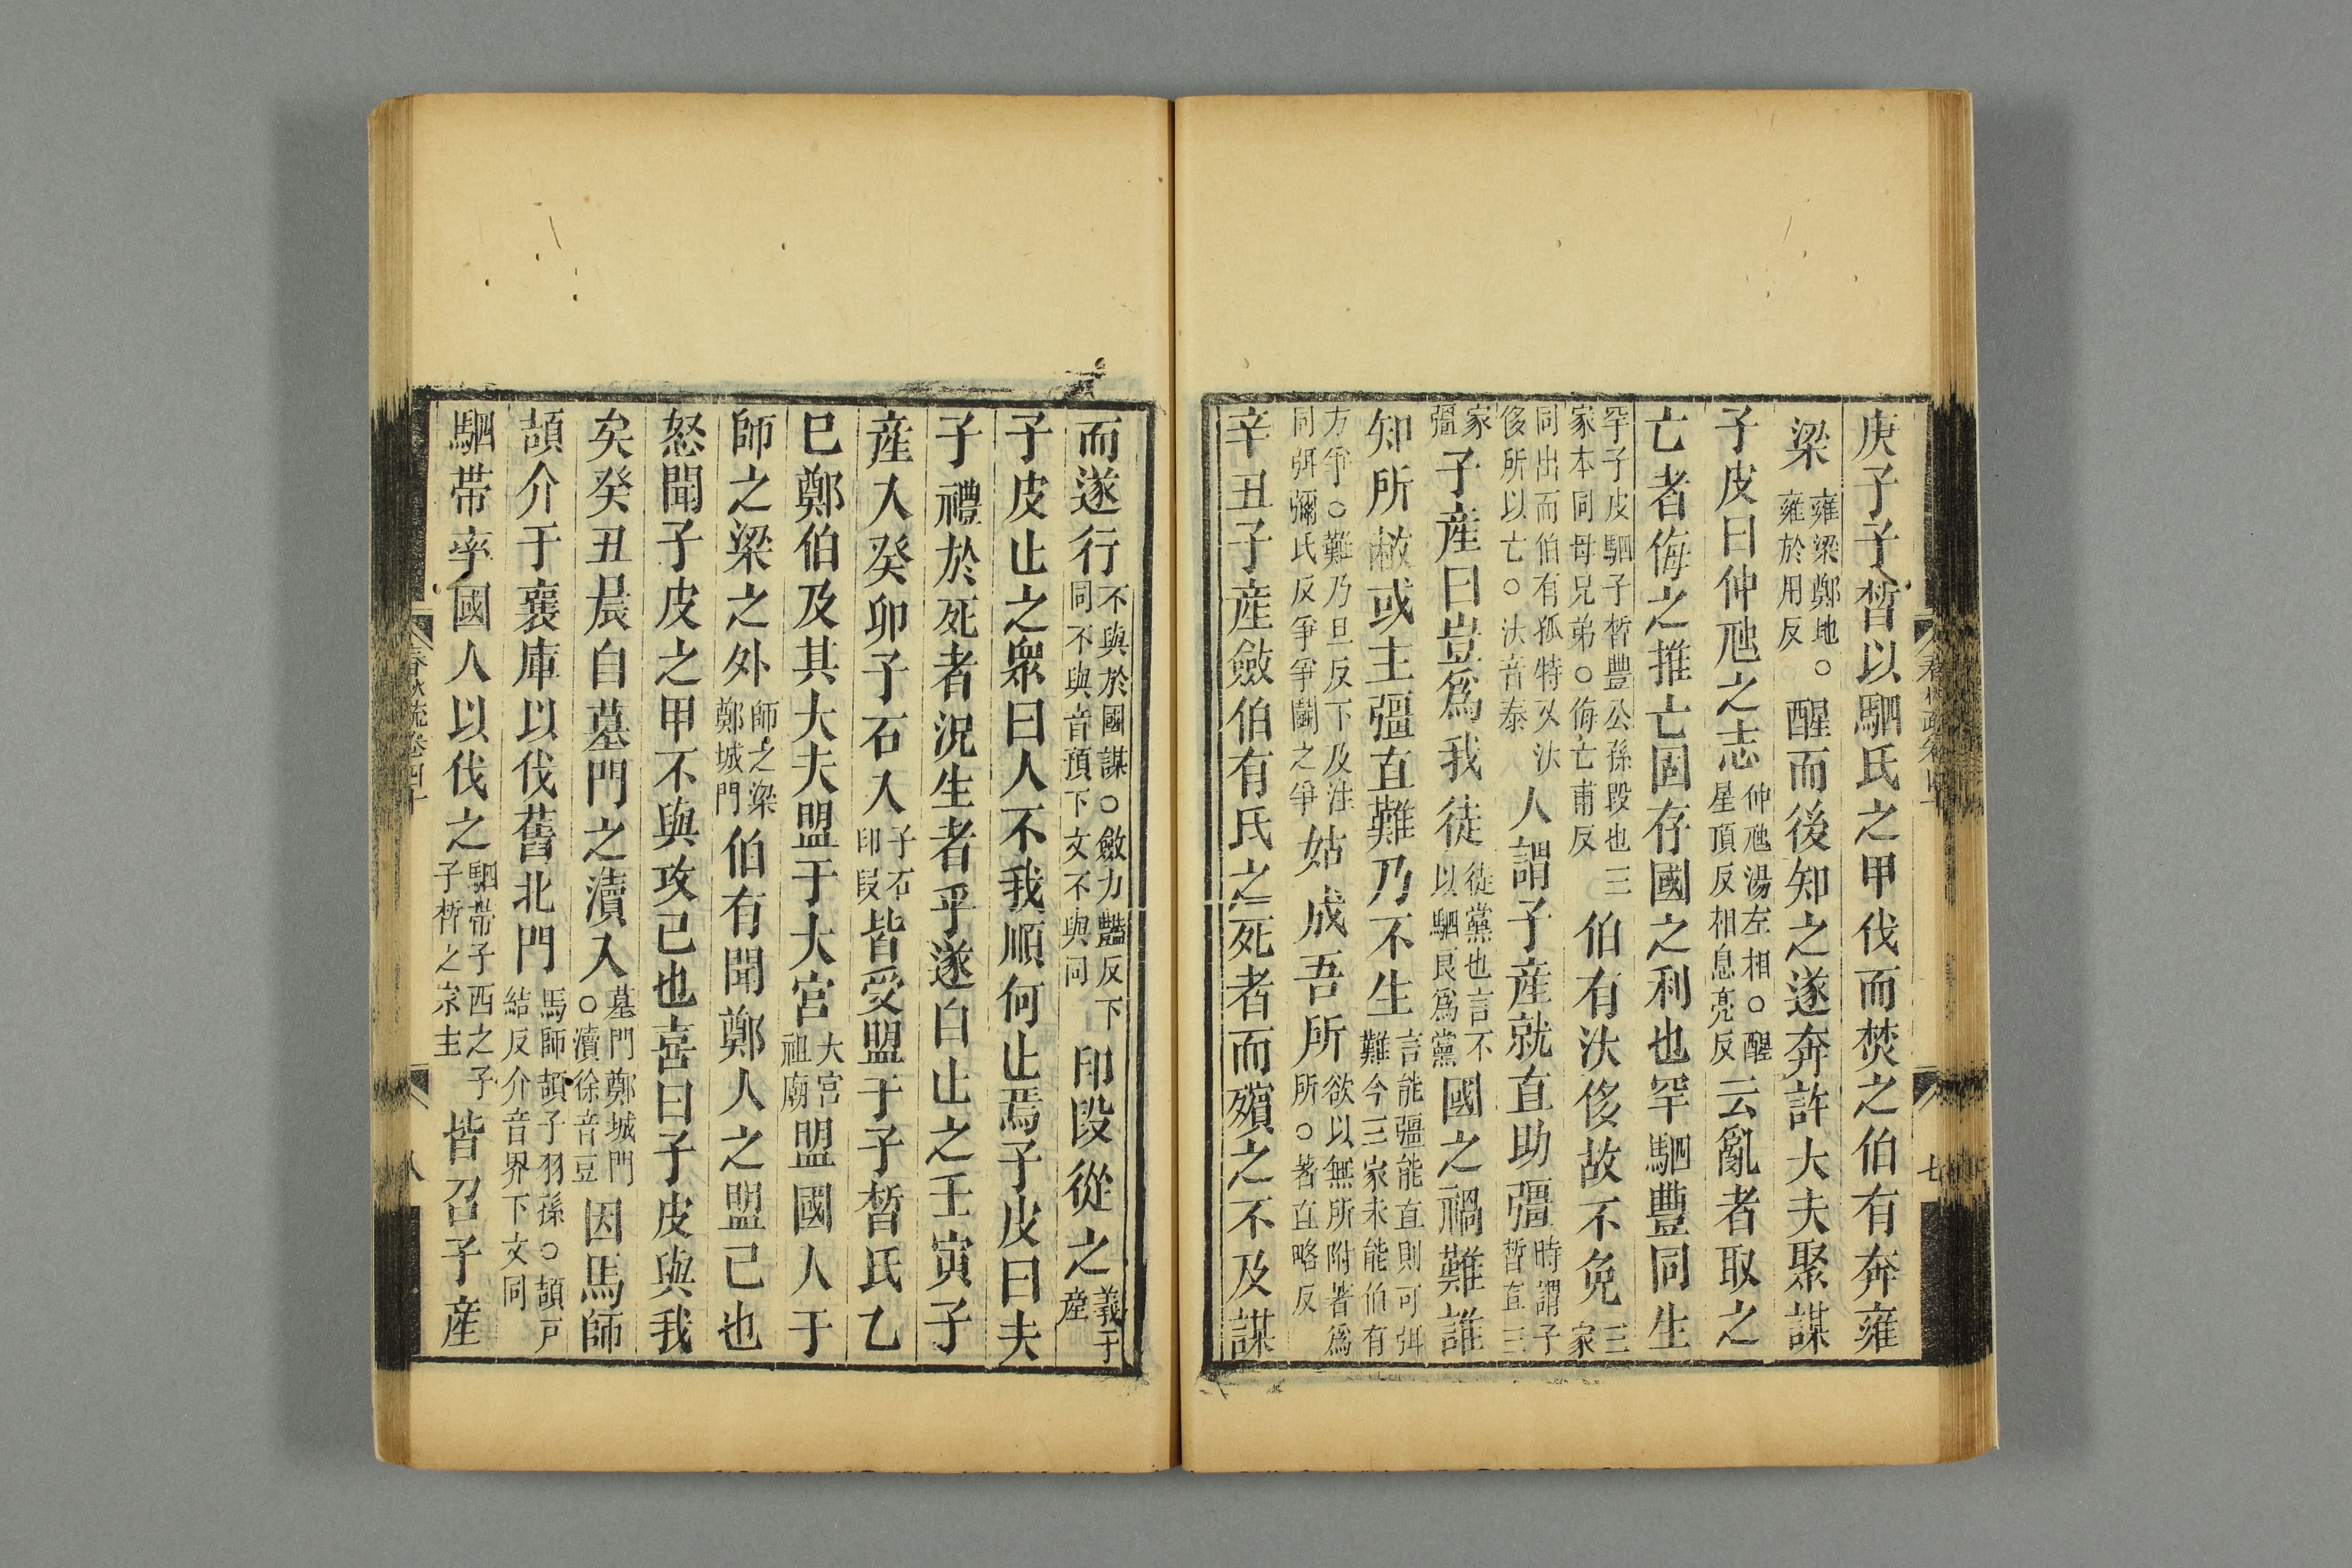 庚子子晳以駟氏之甲伐而焚之伯有奔雍
梁雍梁鄭地○雍於用反醒而後知之遂奔許大夫聚謀
子皮曰仲虺之志仲虺湯左相○醒星頂反相息亮反云亂者取之
亡者侮之推亡固存國之利也罕駟豐同生
罕子皮駟子晳豐公孫段也三家本同母兄弟○侮亡甫反伯有汰侈故不免三家
同出而伯有孤特又汰侈所以亡○汰音泰人謂子產就直助彊時謂子晳直三
家彊子產曰豈爲我徒徒黨也言不以駟良爲黨國之禍難誰
知所敝或主彊直難乃不生言能彊能直則可弭難今三家未能伯有
方爭○難乃旦反下及注同弭彌氏反爭爭鬬之爭姑成吾所欲以無所附著爲所○著直略反
辛丑子產斂伯有氏之死者而殯之不及謀
七
而遂行不與於國謀○斂力豔反下同不與音預下文不與同印段從之義子產
子皮止之衆曰人不我順何止焉子皮曰夫
子禮於死者況生者乎遂自止之壬寅子
產入癸卯子石入子石印段皆受盟于子晳氏乙
巳鄭伯及其大夫盟于大宮大宮祖廟盟國人于
師之梁之外師之梁鄭城門伯有聞鄭人之盟己也
怒聞子皮之甲不與攻己也喜曰子皮與我
矣癸丑晨自墓門之瀆入墓門鄭城門○瀆徐音豆因馬師
頡介于襄庫以伐舊北門馬師頡子羽孫○頡戸結反介音界下文同
駟帶率國人以伐之駟帶子西之子子晳之宗主皆召子產
春秋疏卷四十
八